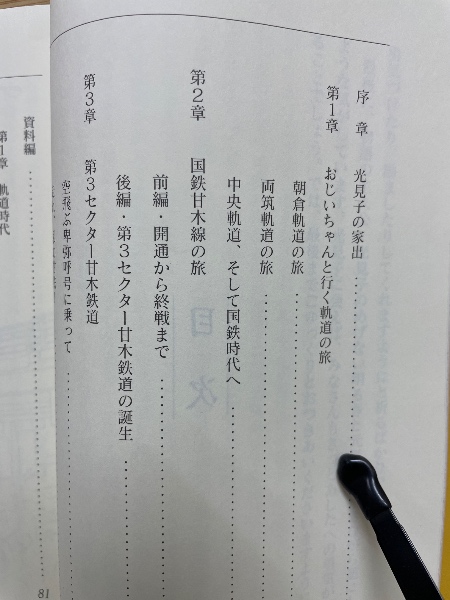 序　章　光見子の家出
第1章　おじいちゃんと行く軌道の旅
朝倉軌道の旅
両筑軌道の旅
中央軌道、そして国鉄時代へ
第2章　国鉄甘木線の旅
前編・開通から終戦まで
後編・第3セクター甘木鉄道の誕生
第3章　第3セクター甘木鉄道
空飛ぶ卑弥呼号に乗って
資料編
第1章　軌道時代
81
目次